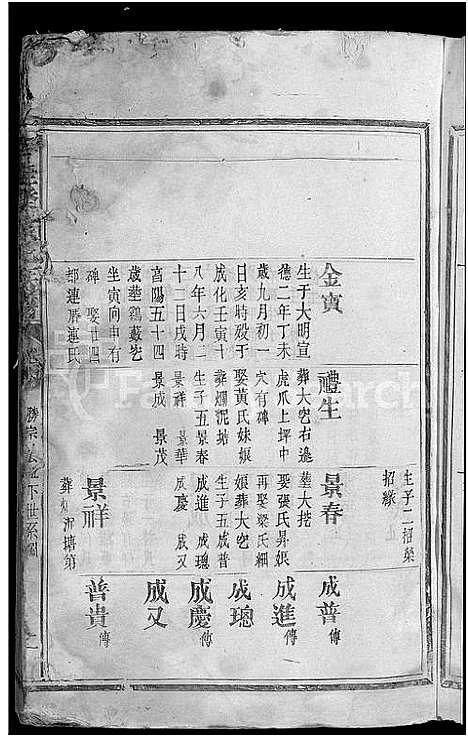 生子二招榮
招緣
金寅
生于大明宣
德二年丁未
歲九月初一
日亥時歿于
成化壬寅十
八年六月二
十二日戌時
享陽五十四
歲塟鷄藪岃
坐寅向申有
碑娶廿四
都連厝連氏
禮生
葬大岃右邉
虎爪上坪中
穴有碑
娶黃氏妹娘
葬爛泥塘
生子五景春
景祥 景華
景成 景茂
景春
塟大㘭
娶張氏昇娘
再娶梁氏細
娘葬大岃
生子五成普
成進 成璁
成慶 成又
景祥
葬爛泥塘
成普傳
成進傳
成璁
成慶傳
成又
普貴傳
下世系圖